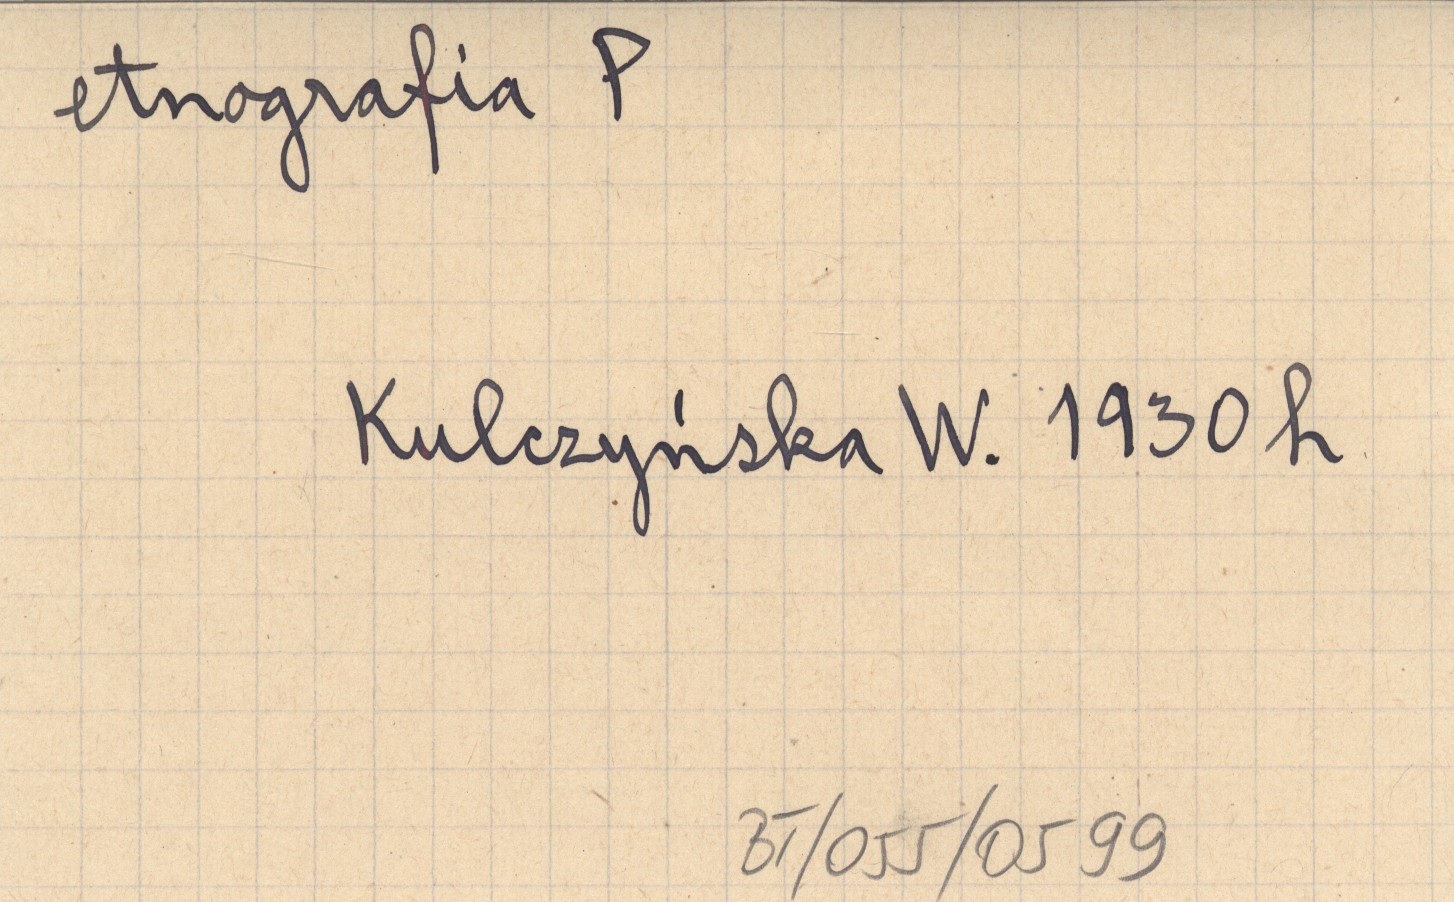 etnografia P
Kulczyńska W. 1930 h
BT/055/0599